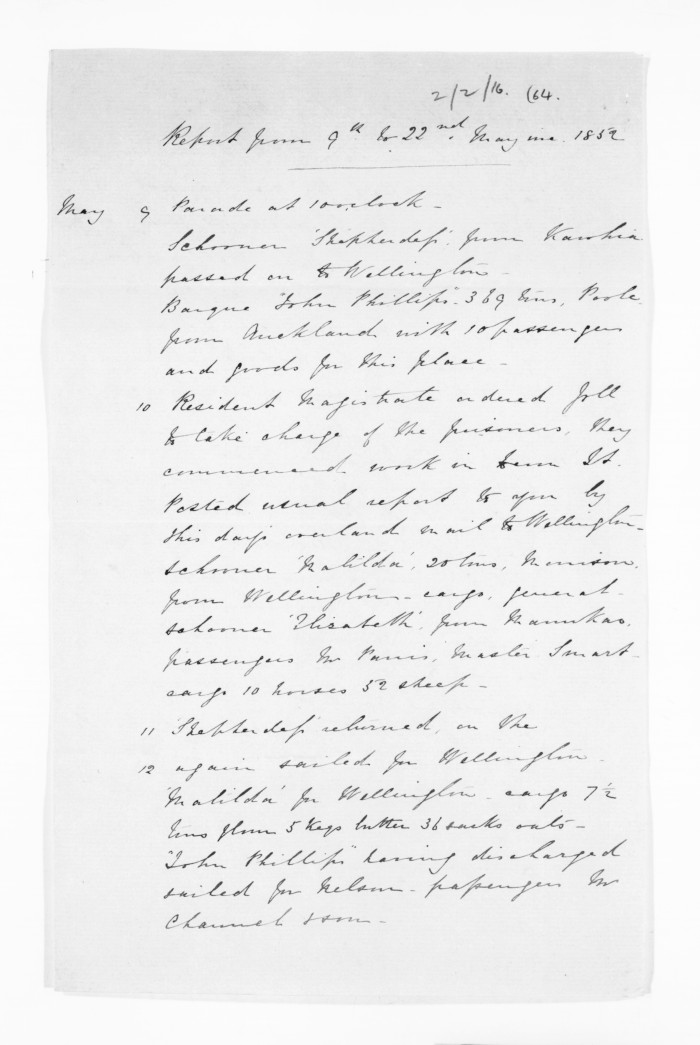 2/2/16. (64.
Report from 9th to 22nd. May inc. 1852
May 9 Parade at 10 o,clock -
Schooner 'Shepherdess'. from Kawhia
passed on to Wellington -
Barque "John Phillips". 369 tons, Poole.
from Auckland with 10 passengers
and goods for this place -
10 Resident Magistrate ordered Joll
to take charge of the prisoners, they
commenced work in St.
Posted usual report to you by
this day's overland mail to Wellington -
schooner 'Matilda', 20 tons, Morrison.
from Wellington - cargo, general -
schooner 'Elizabeth'. from Manukao,
passengers Mr Parris, Master Smart -
cargo 10 horses 52 sheep -
11 'Shepherdess' returned, on the
12 again sailed for Wellington -
'Matilda' for Wellington - cargo 7½
tons flour 5 Kegs butter 36 sacks oats -
"John Phillips" having discharged
sailed for Nelson - passengers Mr
Channel & son -